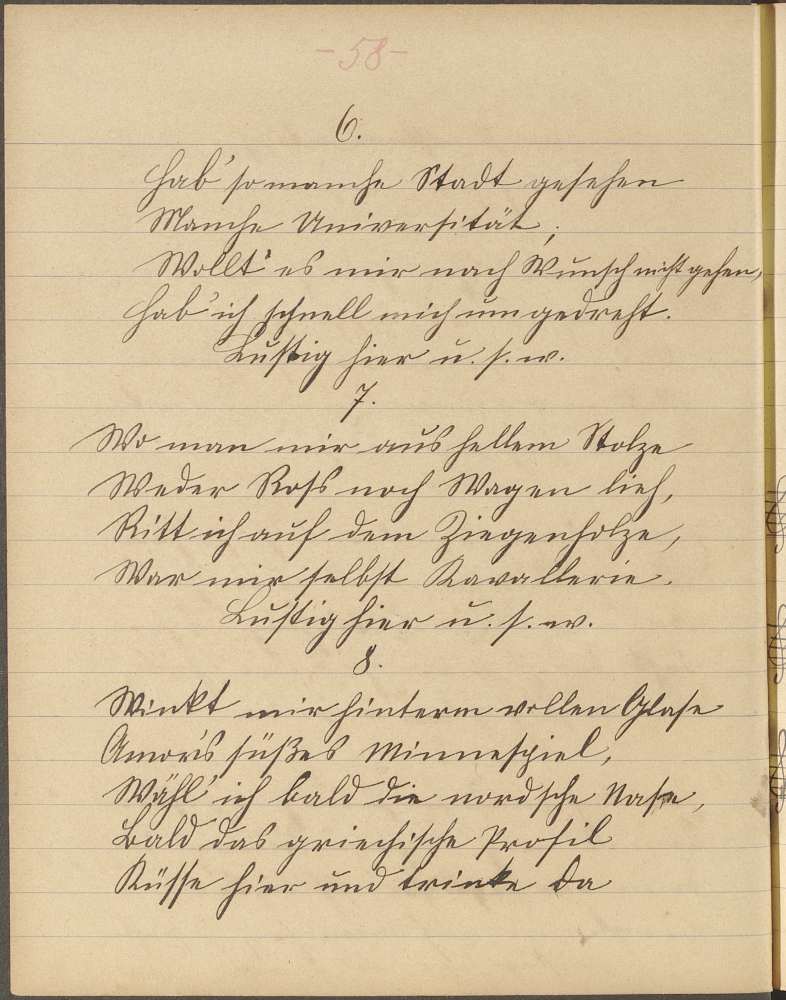 -58-
6.
Hab' so manche Stadt gesehen
Manche Universität;
Wollt' es mir nach Wunsch nicht gehen,
Hab' ich schnell mich umgedreht.
Lustig hier u. s. w.
7.
Wo man mir aus hellem Stolze
Weder Ross noch Wagen lieh,
Ritt ich auf dem Ziegenholze,
War mir selbst Kavallerie.
Lustig hier u. s. w.
8.
Winkt mir hinterm vollen Glase
Amor's süßes Minnespiel,
Wähl' ich bald die nordsche Nase,
Bald das griechische Profil
Küsse hier und trinke da